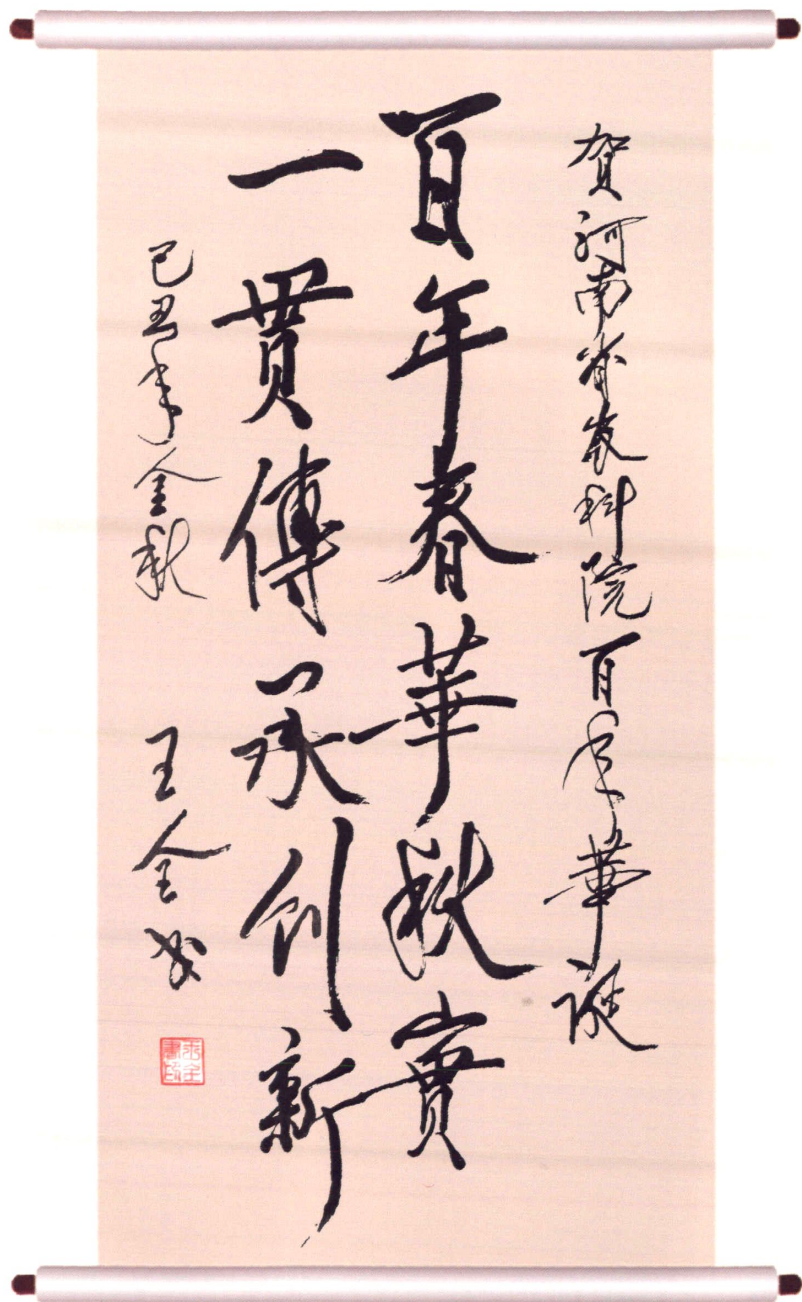 贺河南省农科院百年華诞
百年春華秋實
一贯傳承創新
己丑年金秋
王全书